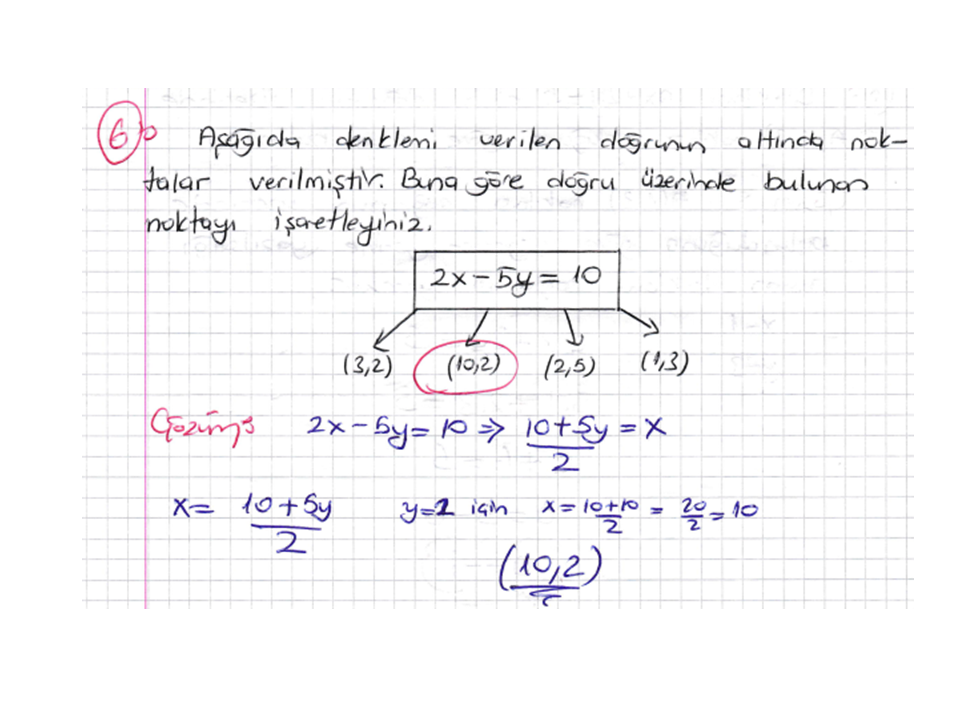 6) Aşağıda denklemi verilen doğrunun altında nok-
talar verilmiştir. Buna göre doğru üzerinde bulunan
noktayı işaretleyiniz.
2x - 5y = 10
(3,2) (10,2) (2,5) (1,3)
Çözüm: 2x - 5y = 10 ⇒ (10+5y)/2 = x
x = (10+5y)/2 y=2 için x = (10+10)/2 = 20/2 = 10
(10,2)